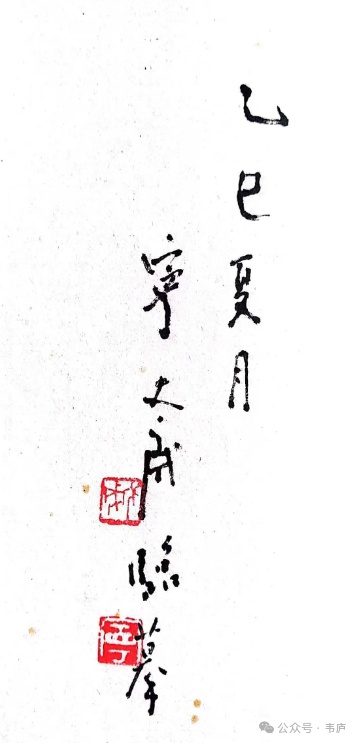 乙巳夏月
寧大甫臨摹
寧
公众号·韦庐